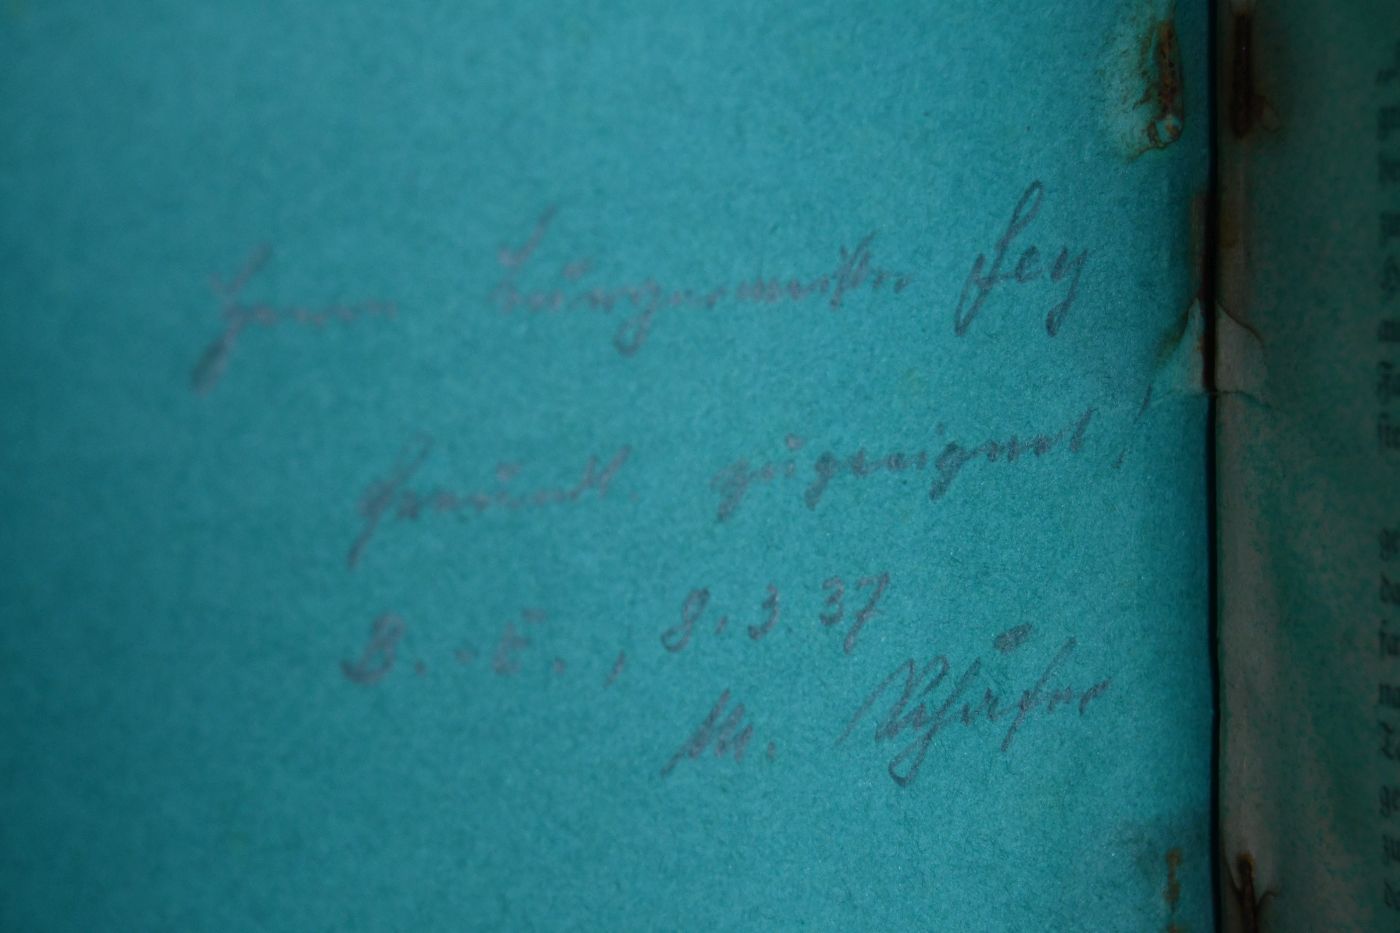 Herrn Bürgermeister Fey
freundl. zugeeignet!
B.-E., 9.3.37
M. Schäfer